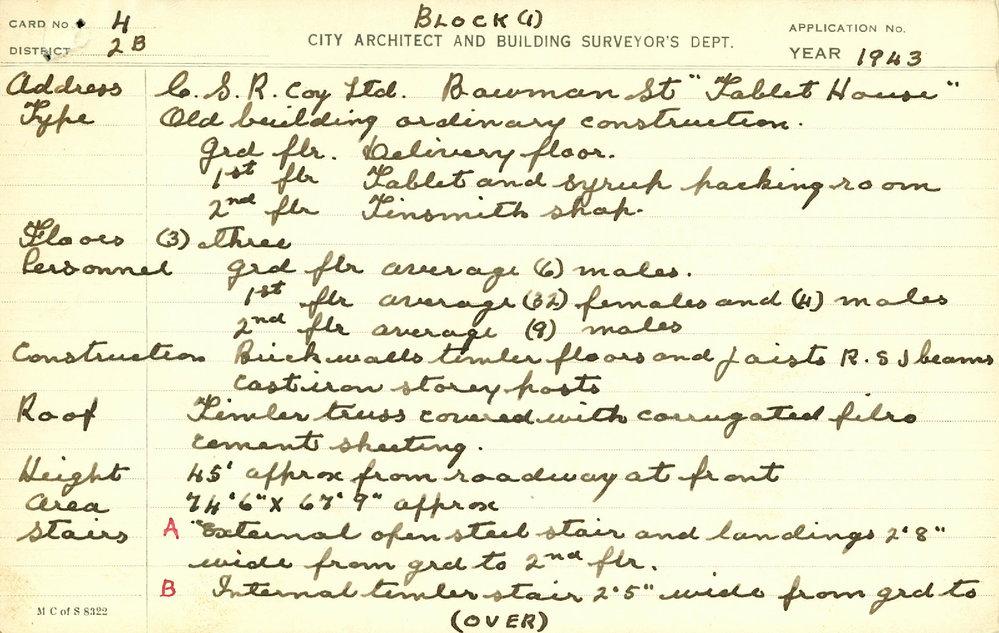 BLOCK (1)
CARD No. 4
CITY ARCHITECT AND BUILDING SURVEYOR'S DEPT.
APPLICATION No.
DISTRICT 2B
YEAR 1943
Address C. S. R. Coy Ltd. Bowman St "Tablet House"
Type Old building ordinary construction.
Grd flr. Delivery floor.
1st flr Tablet and syrup packing room
2nd flr Tinsmith shop.
Floors (3) three
Personnel Grd flr average (6) males.
1st flr average (32) females and (4) males
2nd flr average (9) males
Construction Brick walls timber floors and joists R.S.J beams
cast iron storey posts
Roof Timber truss covered with corrugated fibro
cement sheeting.
Height 45' approx from roadway at front
Area 74'6" X 67'9" approx
Stairs A External open steel stair and landings 2'8"
wide from grd to 2nd flr.
B Internal timber stair 2'5" wide from grd to
M C of S 8322
(OVER)